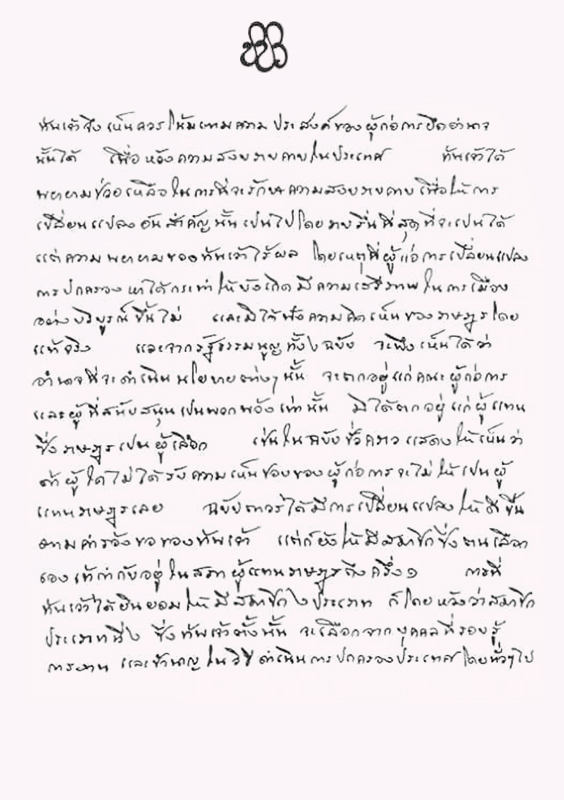 ข้าพเจ้าจึงเห็นควรให้เป็นไปตามความประสงค์ของผู้ก่อการยึดอำนาจ
นั้นได้ เพื่อหวังความสงบราบคาบในประเทศ ข้าพเจ้าได้
พยายามช่วยเหลือในการที่จะรักษาความสงบราบคาบ เพื่อให้การ
เปลี่ยนแปลงอันสำคัญนั้นเป็นไปโดยราบรื่นที่สุดที่จะเป็นได้
แต่ความพยายามของข้าพเจ้าไร้ผล โดยเหตุที่ผู้ก่อการเปลี่ยนแปลง
การปกครองหาได้กระทำให้บังเกิดมีความเสรีภาพในการเมือง
อย่างบริบูรณ์ขึ้นไม่ และมิได้ฟังความคิดเห็นของราษฎรโดย
แท้จริง และจากรัฐธรรมนูญทั้ง ๒ ฉบับ จะพึงเห็นได้ว่า
อำนาจที่จะดำเนินนโยบายต่างๆ นั้น จะตกอยู่แก่คณะผู้ก่อการ
และผู้ที่สนับสนุนเป็นพวกพ้องเท่านั้น มิได้ตกอยู่แก่ผู้แทน
ซึ่งราษฎรเป็นผู้เลือก เช่นในฉบับชั่วคราว แสดงให้เห็นว่า
ถ้าผู้ใดไม่ได้รับความเห็นชอบของผู้ก่อการ จะไม่ให้เป็นผู้
แทนราษฎรเลย ฉบับถาวรได้มีการเปลี่ยนแปลงให้ดีขึ้น
ตามคำร้องขอของข้าพเจ้า แต่ก็ยังให้มีสมาชิกซึ่งตนเลือก
เองเข้ากำกับอยู่ในสภาผู้แทนราษฎรถึงครึ่ง ๑ การที่
ข้าพเจ้าได้ยินยอมให้มีสมาชิก ๒ ประเภท ก็โดยหวังว่าสมาชิก
ประเภทที่ ๒ ซึ่งข้าพเจ้าตั้งนั้น จะเลือกจากบุคคลที่รอบรู้
การงาน และชำนาญในวิธีดำเนินการปกครองประเทศโดยทั่วๆ ไป